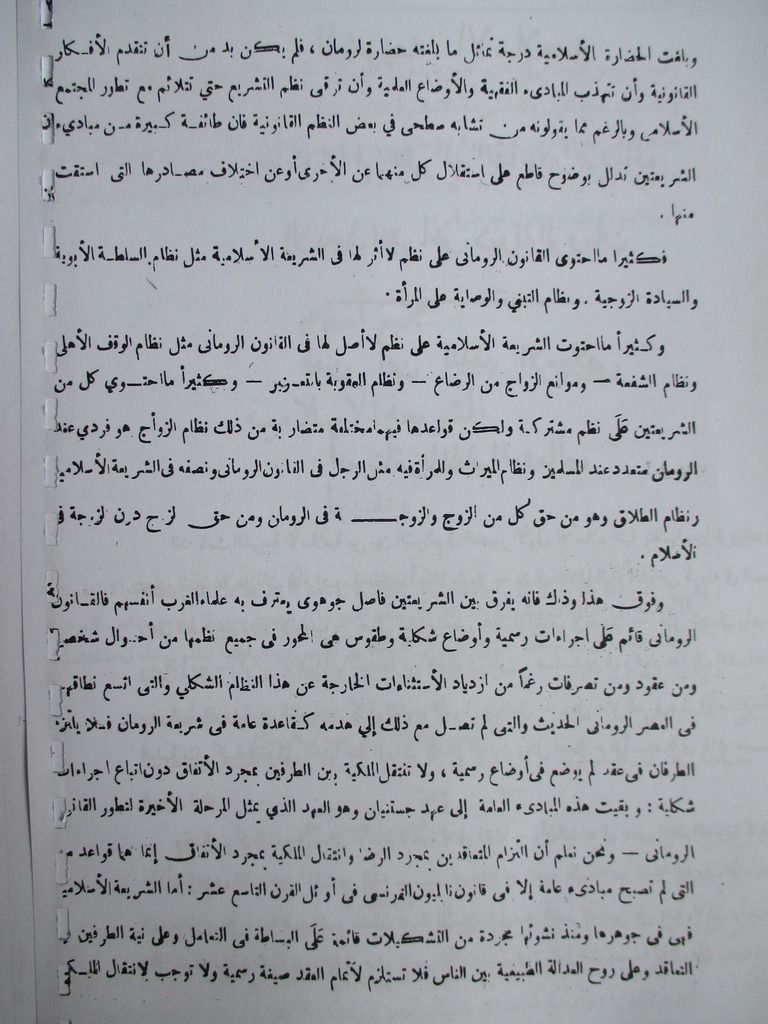 وبلغت الحضارة الأسلامية درجة تماثل ما بلغته حضارة لرومان ، فلم يكن بد من أن تتقدم الأفكار
القانونية وأن تتهذب المبادىء الفقهية والأوضاع العلمية وأن ترقى نظم التشريع حتي تتلائم مع تطور المجتمع
الأسلامى وبالرغم مما يقولونه من تشابه سطحى في بعض النظم القانونية فان طائفة كبيرة من مبادىء
الشريعتين تدلل بوضوح قاطع على استقلال كل منهما عن الأخرى أوعن اختلاف مصادرها التى استقت
منها .
فكثيرا مااحتوى القانون الرومانى على نظم لاأثر لها فى الشريعة الأسلامية مثل نظام السلطة الأبوية
والسيادة الزوجية . ونظام التبني والوصاية على المرأة .
وكثيرأ مااحتوت الشريعة الأسلامية على نظم لاأصل لها فى القانون الرومانى مثل نظام الوقف الأهلى
ونظام الشفعة — وموانع الزواج من الرضاع — ونظام العقوبة بالتعزير — وكثيرأ مااحتوي كل من
الشريعتين عَلَى نظم مشتركة ولكن قواعدها فيهما مختلفة متضاربة من ذلك نظام الزوأج هو فردي عند
الرومان متعدد عند المسلمين ونظام الميراث والمرأة فيه مثل الرجل فى القانون الرومانى ونصفه فى الشريعة الأسلامية
ونظام الطلاق وهو من حق كل من الزوج والزوجـــــة فى الرومان ومن حق لزوج درن لزوجة في
الأسلام .
وفوق هذا وذاك فانه يفرق بين الشريعتين فاصل جوهوى يعترف به علماء الغرب أنفسهم فالقانون
الرومانى قائم عَلَى اجراءات رسمية وأوضاع شكلية وطقوس هى المحور فى جميع نظمها من أحوال شخصية
ومن عقود ومن تصرفات رغماً من ازدياد الأستثناءات الخارجة عن هذا النظام الشكلي والتى اتسع نطاقها
فى العصر الرومانى الحديث والتى لم تصل مع ذلك إلي هدمه كقاعدة عامة فى شريعة الرومان فلا يلتزم
الطرفان فى عقد لم يوضع فى أوضاع رسمية ، ولا تنتقل الملكية بين الطرفين بمجرد الأتفاق دون اتباع اجراءات
شكلية : وبقيت هذه المبادىء العامة إلى عهد جستنيان وهو العهد الذي يمثل المرحلة الأخيرة لتطور القانون
الرومانى — ونحن نعلم أن التزام المتعاقدين بمجرد الرضا وانتقال الملكية بمجرد الأتفاق إنما هما قواعد
التى لم تصبح مبادىء عامة إلا فى قانون نابليون الفرنسى فى أوئل القرن التاسع عشر : أما الشريعة الأسلامية
فهى فى جوهرها ومنذ نشوئها مجردة من التشكيلات قائمة عَلَى البساطة فى التعامل وعلى نية الطرفين
التعاقد وعلى روح العدالة الطبيعية بين الناس فلا تستلزم لأتمام العقد صيغة رسمية ولا توجب لانتقال الملكية